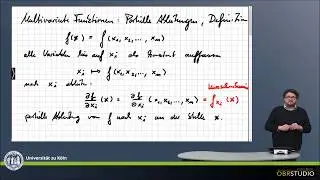 Multivariate Funktionen: Partielle Ableitungen, Definition
f(x) = f(x₁, x₂, ..., xₙ)
alle Variablen bis auf xᵢ als Konstant auffassen
xᵢ ↦ f(x₁, x₂, ..., xₙ)
nach xᵢ ableiten:
∂f/∂xᵢ (x) = ∂f/∂xᵢ (x₁, x₂, ..., xₙ) = f_xᵢ (x)
partielle Ableitung von f nach xᵢ an der Stelle x.
Universität zu Köln
OBRSTUDIO